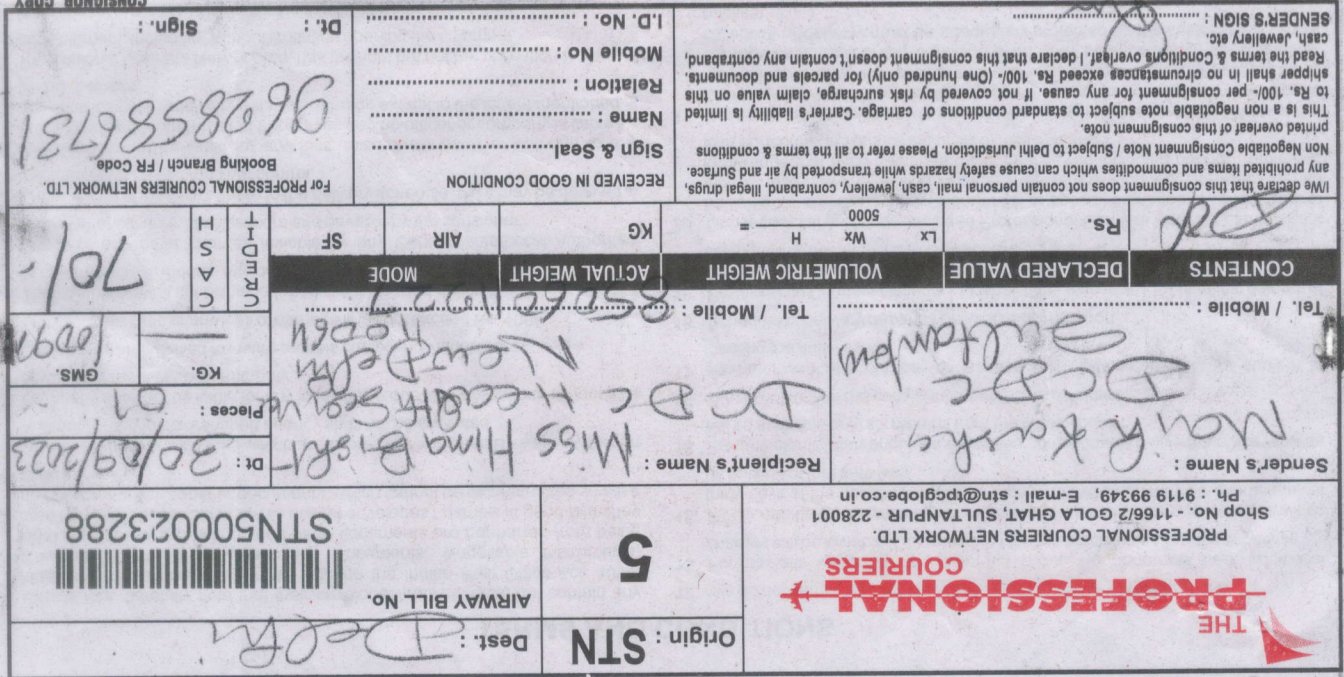 THE
PROFESSIONAL
COURIERS
PROFESSIONAL COURIERS NETWORK LTD.
Shop No. - 1166/2 GOLA GHAT, SULTANPUR - 228001
Ph. : 9119 99349, E-mail : stn@tpcglobe.co.in
Origin : STN
5
Dest. : Delhi
AIRWAY BILL No.
STN500023288
Sender's Name :
DCDC
Sultanpur
Tel. / Mobile :
Recipient's Name : Miss Hima Bisht
DCDC Health
New Delhi
Tel. / Mobile :
Dt : 30/09/2023
Pieces : 01
KG. GMS.
CREDIT
CASH
70/-
CONTENTS DECLARED VALUE VOLUMETRIC WEIGHT ACTUAL WEIGHT MODE
Rs
Lx Wx H =
5000
KG
AIR SF
I/We declare that this consignment does not contain personal mail, cash, jewellery, contraband, illegal drugs,
any prohibited items and commodities which can cause safety hazards while transported by air and Surface.
Non Negotiable Consignment Note / Subject to Delhi Jurisdiction. Please refer to all the terms & conditions
printed overleaf of this consignment note.
This is a non negotiable note subject to standard conditions of carriage. Carrier's liability is limited
to Rs. 100/- per consignment for any cause. If not covered by risk surcharge, claim value on this
shipper shall in no circumstances exceed Rs. 100/- (One hundred only) for parcels and documents.
Read the terms & Condition overleaf. I declare that this consignment doesn't contain any contraband,
cash, Jewellery etc.
SENDER'S SIGN :
RECEIVED IN GOOD CONDITION
Sign & Seal
Name :
Relation :
Mobile No :
I.D. No. :
For PROFESSIONAL COURIERS NETWORK LTD.
Booking Branch / FR Code
9628586731
Dt: Sign. :
CONSIGNOR COPY